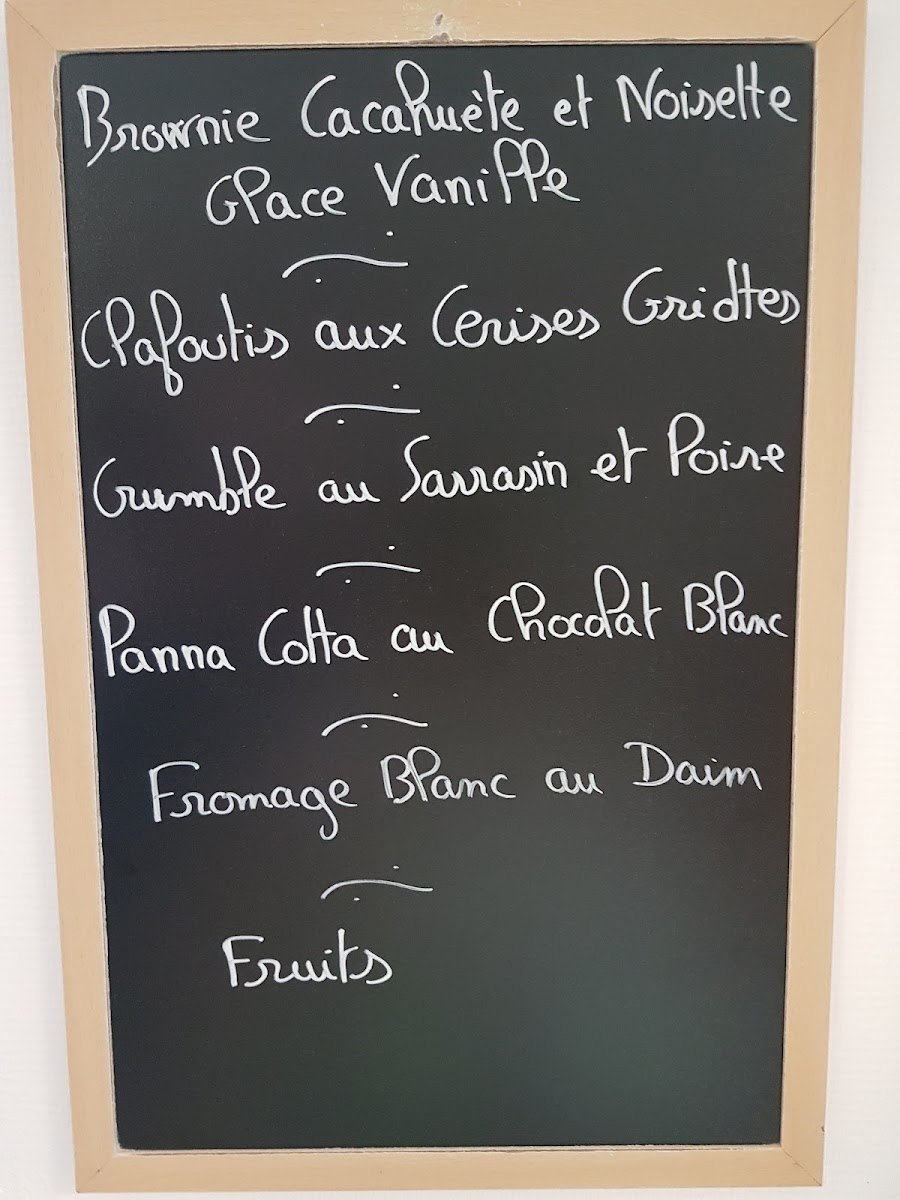 Brownie Cacahuète et Noisette
Glace Vanille
Clafoutis aux Cerises Griottes
Crumble au Sarrasin et Poire
Panna Cotta au Chocolat Blanc
Fromage Blanc au Daim
Fruits